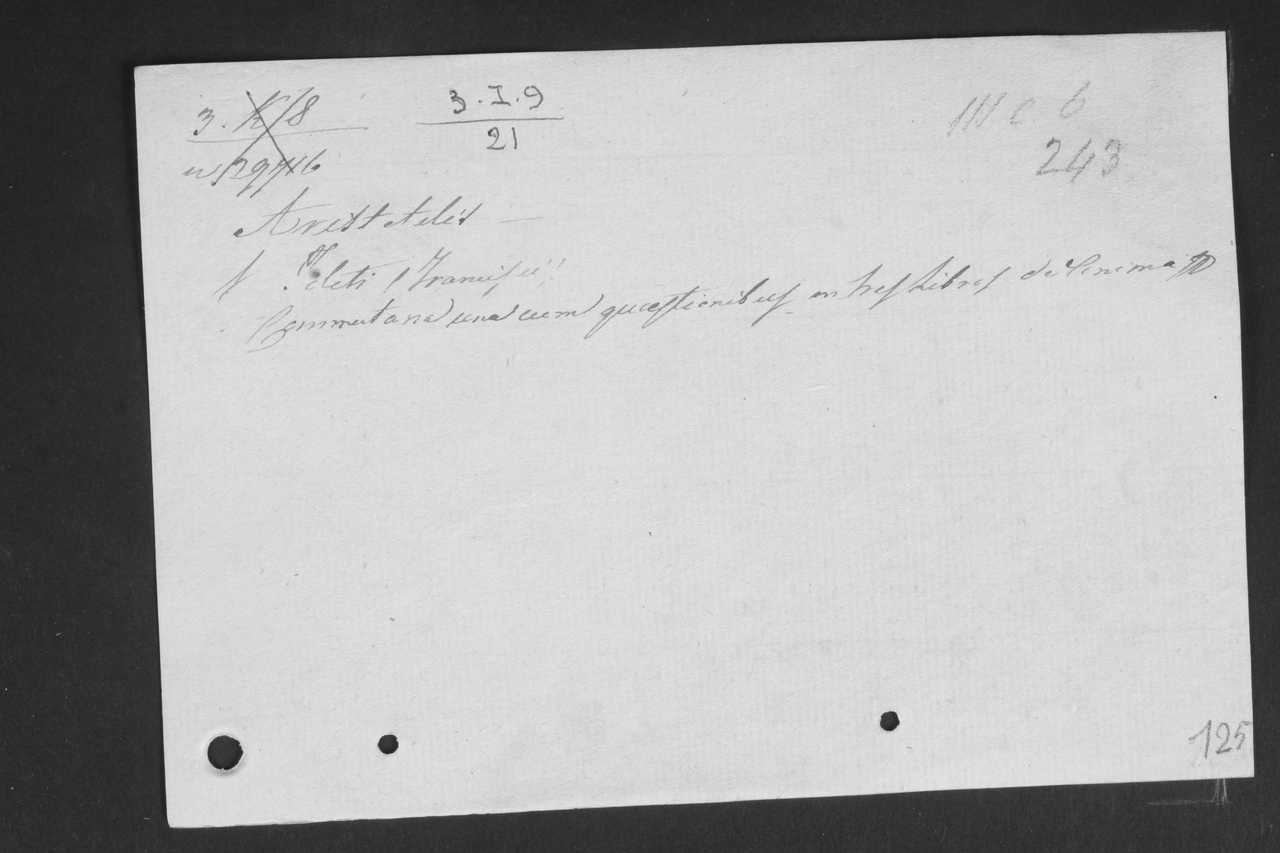 3. K/8
3.I.9
21
III c 6
243
Aristotelis —
Toleti Francisci
Commentaria una cum quæstionibus in tres Libros de Anima
125